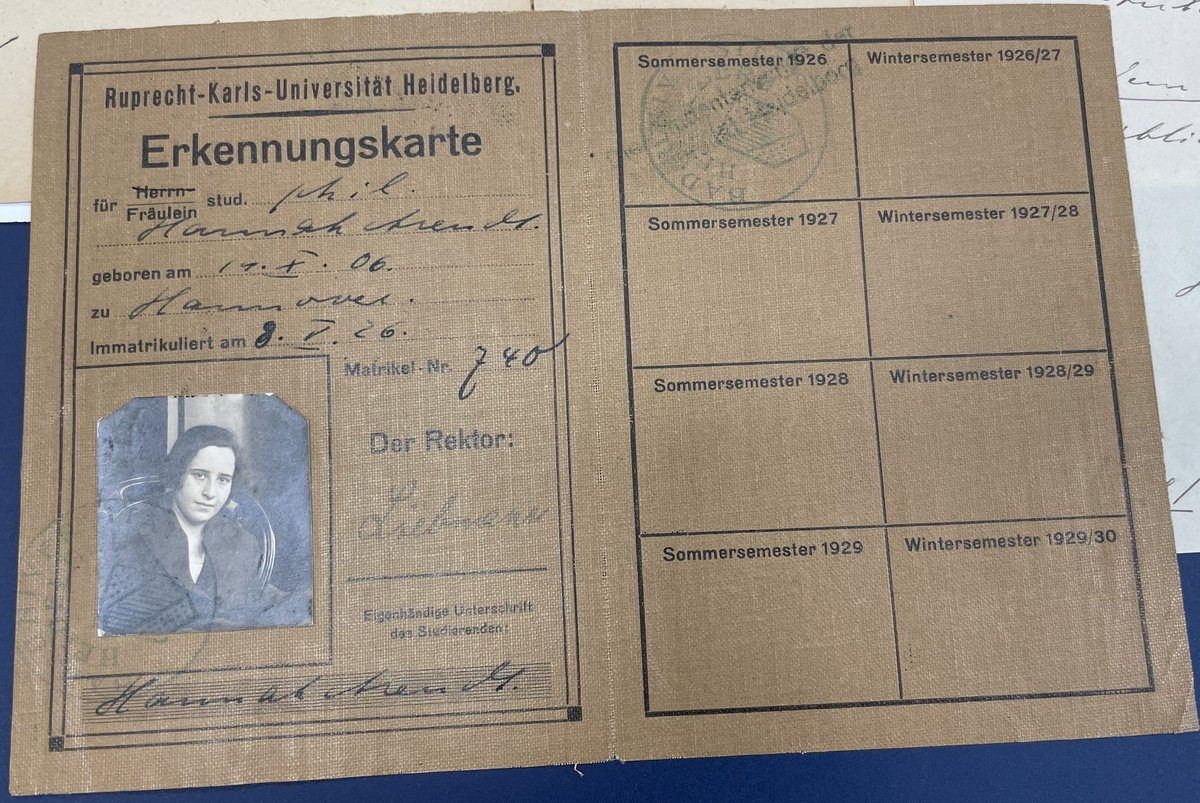 Ruprecht-Karls-Universität Heidelberg.
Erkennungskarte
für Herrn
Fräulein stud. phil.
Hannah Arendt.
geboren am 14. X. 06.
zu Hannover.
Immatrikuliert am 8. V. 26.
Matrikel-Nr. 740
Der Rektor:
Liebmann
Eigenhändige Unterschrift
des Studierenden:
Hannah Arendt.
Sommersemester 1926
Wintersemester 1926/27
Sommersemester 1927
Wintersemester 1927/28
Sommersemester 1928
Wintersemester 1928/29
Sommersemester 1929
Wintersemester 1929/30